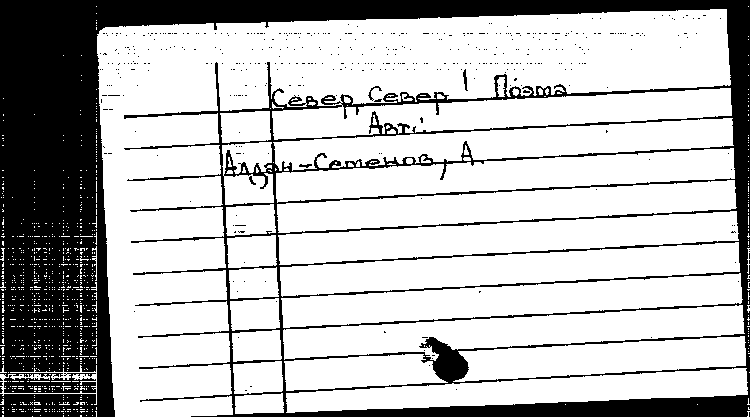 Север, Север! Поэма
Авт.:
Алдан-Семенов, А.